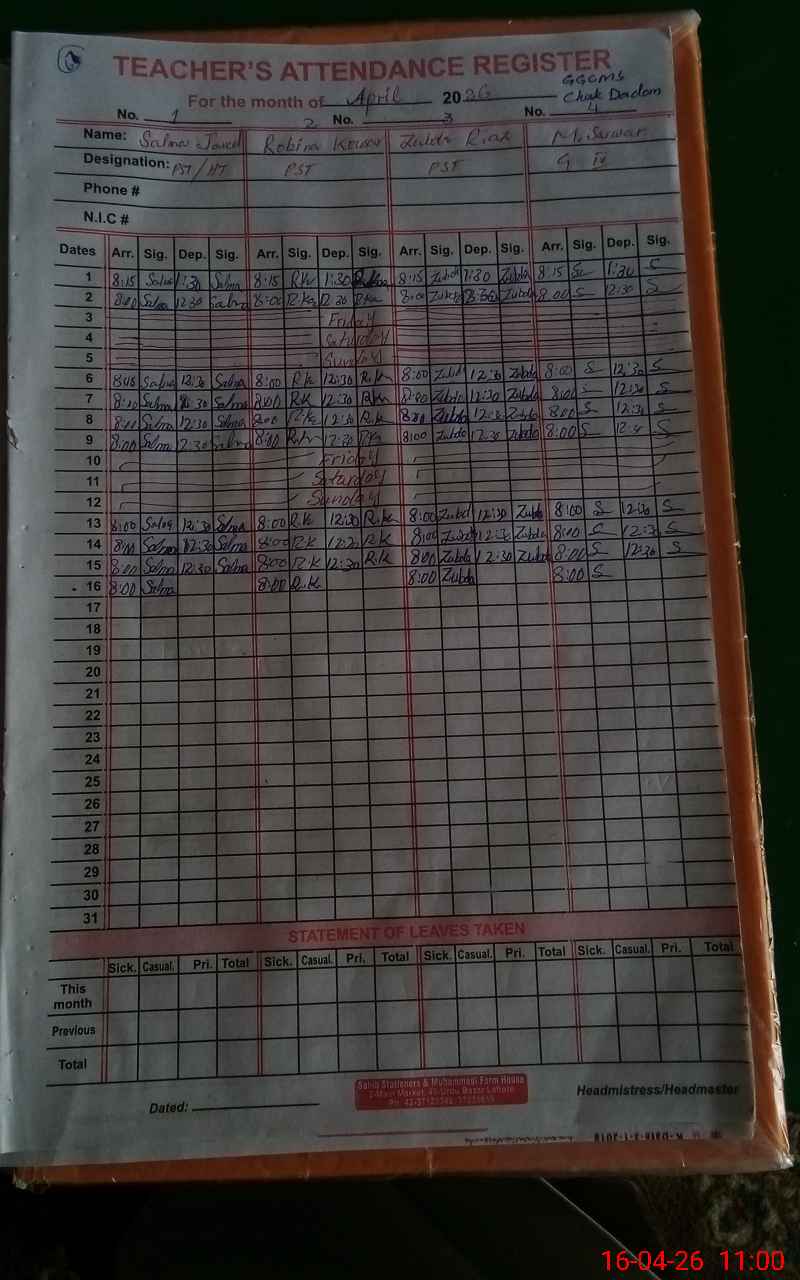 TEACHER'S ATTENDANCE REGISTER
GGCMS
For the month of April 2026 Chak Dadam
No. 1 2 No. 3 No. 4
Name: Salma Javed Robina Kousar Zubda Riaz M. Sarwar
Designation: PST/HT PST PST IV
Phone #
N.I.C #
Dates Arr. Sig. Dep. Sig. Arr. Sig. Dep. Sig. Arr. Sig. Dep. Sig. Arr. Sig. Dep. Sig.
1 8:15 Salma 1:30 Salma 8:15 R.K 1:30 8:15 Zubda 1:30 Zubda 8:15 S 1:30 S
2 8:00 Salma 12:30 Salma 8:00 R.K 12:30 R.K 8:00 Zubda Zubda 8:00 S 12:30 S
3 Friday
4 Saturday
5 Sunday
6 Salma 12:30 Salma 8:00 R.K 12:30 R.K 8:00 Zubda 12:30 Zubda 8:00 S 12:30 S
7 8:00 Salma 12:30 Salma 8:00 R.K 12:30 R.K 8:00 Zubda 12:30 Zubda 8:00 S 12:30 S
8 8:00 Salma 12:30 Salma 8:00 R.K 12:30 R.K 8:00 Zubda 12:30 Zubda 8:00 S 12:30 S
9 8:00 Salma 12:30 Salma 8:00 R.K 12:30 R.K 8:00 Zubda 12:30 Zubda 8:00 S S
10 Friday
11 Saturday
12 Sunday
13 8:00 Salma 12:30 Salma 8:00 R.K 12:30 R.K 8:00 Zubda 12:30 Zubda 8:00 S 12:30 S
14 8:00 Salma 12:30 Salma 8:00 R.K 12:30 R.K 8:00 Zubda 12:30 Zubda 8:00 S 12:30 S
15 8:00 Salma 12:30 Salma 8:00 R.K 12:30 R.K 8:00 Zubda 12:30 Zubda 8:00 S 12:30 S
16 8:00 Salma 8:00 R.K 8:00 Zubda 8:00 S
17
18
19
20
21
22
23
24
25
26
27
28
29
30
31
STATEMENT OF LEAVES TAKEN
Sick. Casual. Pri. Total Sick. Casual. Pri. Total Sick. Casual. Pri. Total Sick. Casual. Pri. Total
This month
Previous
Total
Dated:
Stationers & Muhammadi Form House
2-Main Market, Urdu Bazar Lahore
Headmistress/Headmaster
16-04-26 11:00